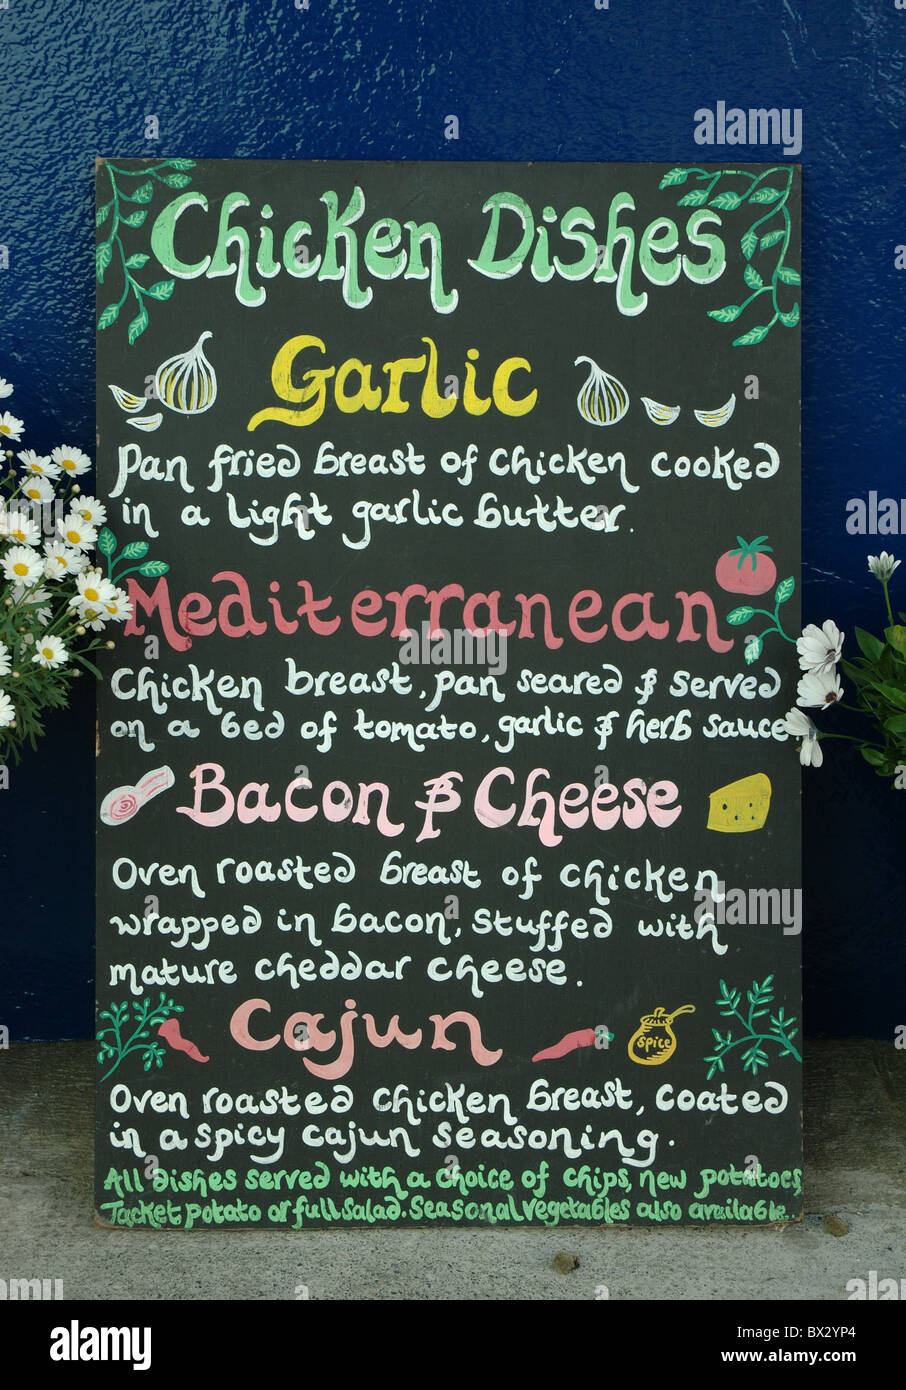 Chicken Dishes
Garlic
Pan fried breast of chicken cooked
in a light garlic butter.
Mediterranean
Chicken breast, pan seared & served
on a bed of tomato, garlic & herb sauce
Bacon & Cheese
Oven roasted breast of chicken
wrapped in bacon, stuffed with
mature cheddar cheese.
Cajun
spice
Oven roasted chicken breast, coated
in a spicy cajun seasoning.
All dishes served with a choice of chips, new potatoes,
Jacket potato or full salad. Seasonal vegetables also available..
a
a
alamy
alamy
a
alamy
a
alamy
a
alamy
Image ID: BX2YP4
www.alamy.com